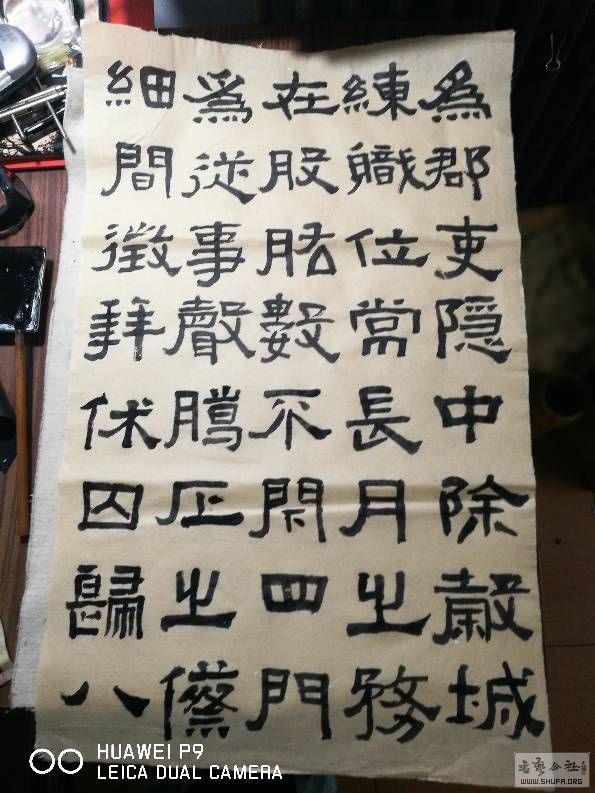 爲郡吏隱中除穀城
練職位常長月之務
在股肱數不閉四門
爲從事聲臘正之
細聞徵拜休囚歸八
HUAWEI P9
LEICA DUAL CAMERA
书艺公社
WWW.SHUFA.ORG